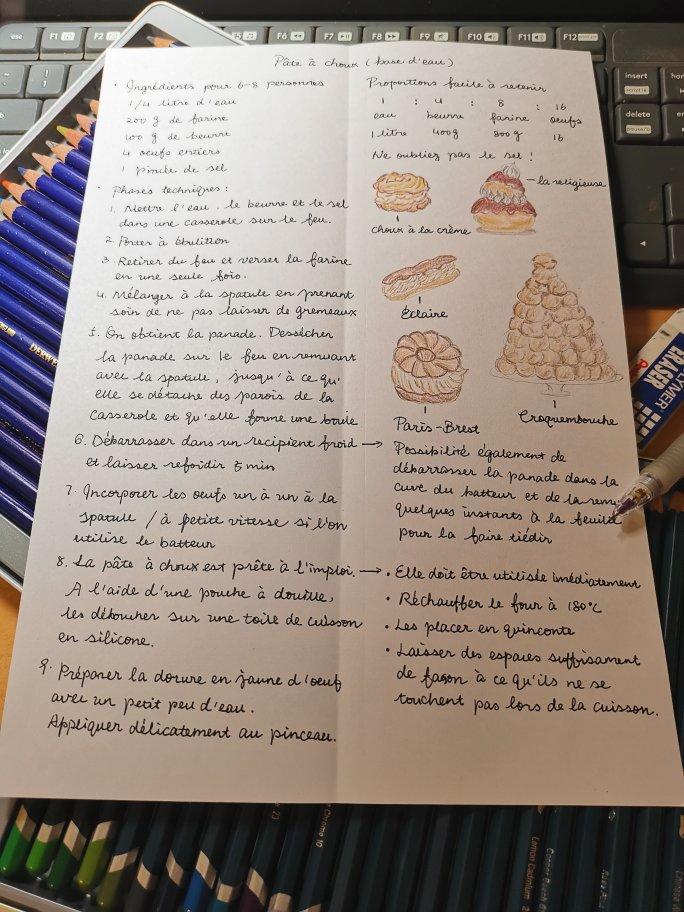 Pâte à choux (base d'eau)
• Ingrédients pour 6-8 personnes
1/4 litre d'eau
200 g de farine
100 g de beurre
4 oeufs entiers
1 pincée de sel
• Phases techniques :
1. Mettre l'eau, le beurre et le sel
dans une casserole sur le feu.
2. Porter à ébulition
3. Retirer du feu et verser la farine
en une seule fois.
4. Mélanger à la spatule en prenant
soin de ne pas laisser de grumeaux
5. On obtient la panade. Dessécher
la panade sur le feu en remuant
avec la spatule, jusqu'à ce qu'
elle se détache des parois de la
casserole et qu'elle forme une boule
6. Débarrasser dans un recipient froid →
et laisser refoidir 5 min
7. Incorporer les oeufs un à un à la
spatule / à petite vitesse si l'on
utilise le batteur
8. La pâte à choux est prête à l'imploi. →
A l'aide d'une pouche à douille,
les déboucher sur une toile de cuisson
en silicone.
9. Préparer la dorure en jaune d'oeuf
avec un petit peu d'eau.
Appliquer délicatement au pinceau.
Proportions facile à retenir
1 : 4 : 8 : 16
eau beurre farine oeufs
1 litre 400g 800g 16
Ne oubliez pas le sel !
la religieuse
choux à la crème
Éclaire
Paris-Brest
Croquembouche
Possibilité également de
débarrasser la panade dans la
cuve du batteur et de la remu
quelques instants à la feuille
pour la faire tiédir
• Elle doit être utilisée imédiatement
• Réchauffer le four à 180°C
• Les placer en quinconte
• Laisser des espaces suffisament
de façon à ce qu'ils ne se
touchent pas lors de la cuisson.
esc
F1
F2
F5
F6
F7
F8
F9
F10
F11
F12
insert
delete
DERWE
POLYMER
ERASER
Chrome 10
Lemon Cadmium
Copper Beech